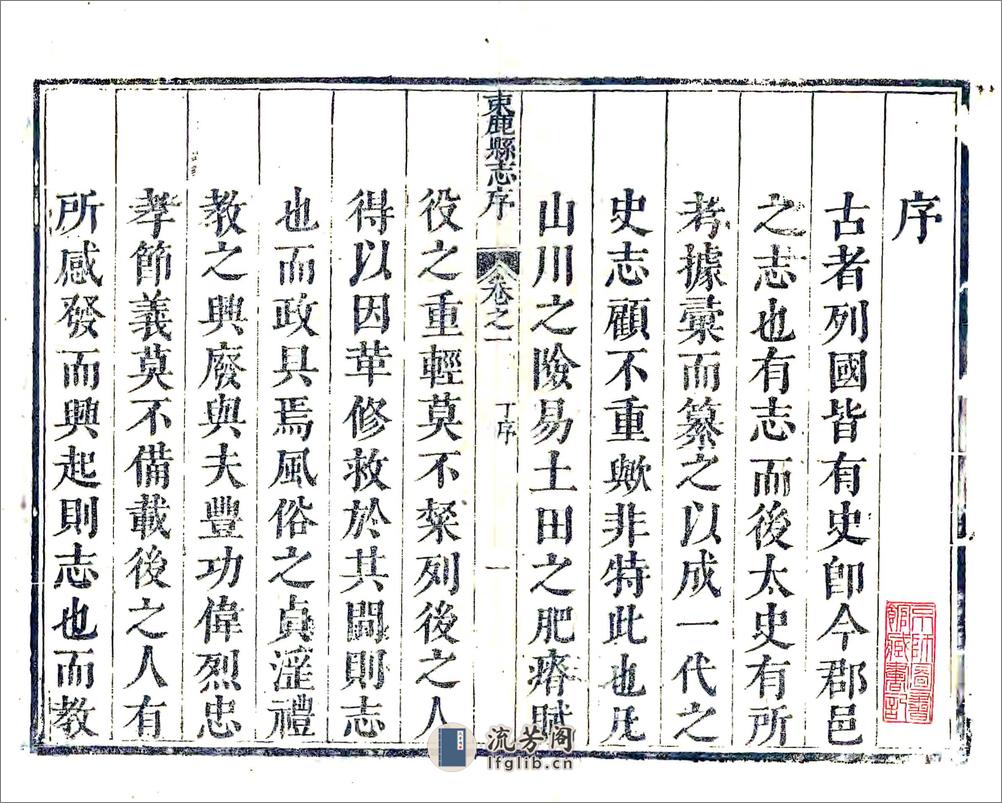 序
古者列國皆有史卽今郡邑
之志也有志而後太史有所
考據彚而纂之以成一代之
史志顧不重歟非特此也凡
山川之險易土田之肥瘠賦
東鹿縣志序
卷之一
丁序
一
役之重輕莫不粲列後之人
得以因革修救於其閒則志
也而政具焉風俗之貞淫禮
教之興廢與夫豐功偉烈忠
孝節義莫不備載後之人有
所感發而興起則志也而教
京師圖書
館藏書記
流芳阁
lfglib.cn